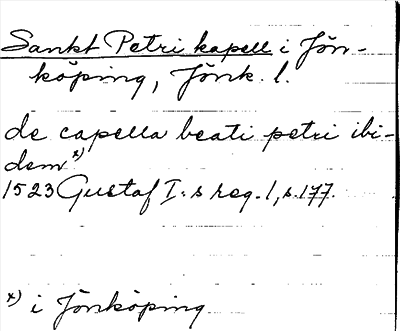 Sankt Petri kapell i Jön-
köping, Jönk. l.
de capella beati petri ibi-
dem x)
1523 Gustaf I:s reg. 1, s. 177.
x) i Jönköping